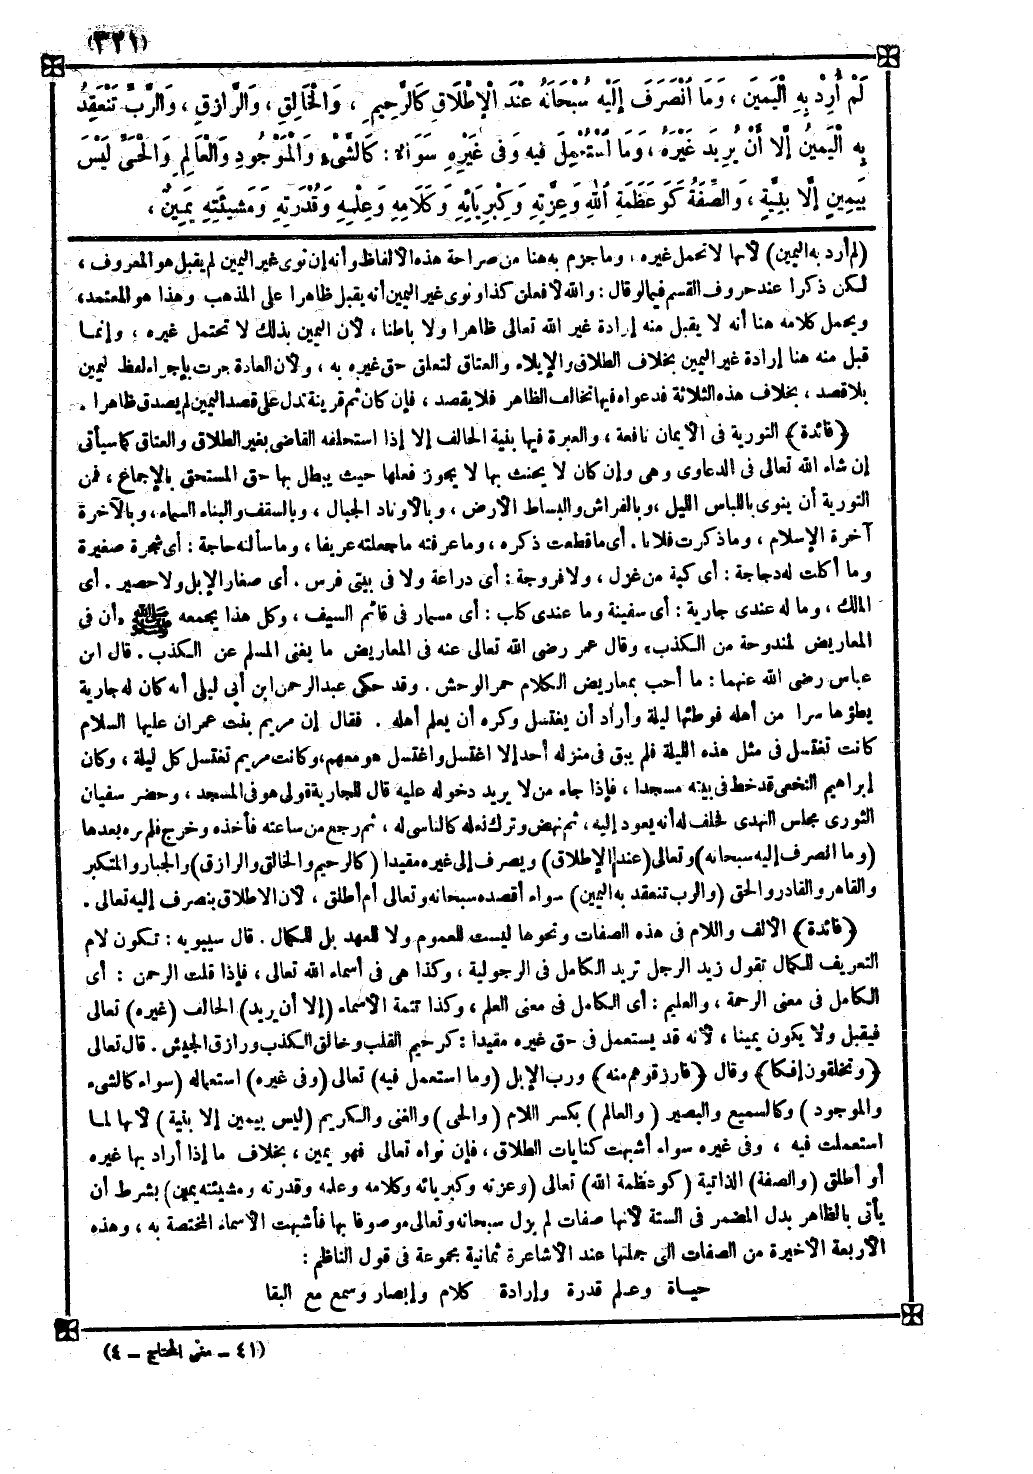 (٣٢١)
لَمْ أُرِدْ بِهِ الْيَمِينَ ، وَمَا انْصَرَفَ إلَيْهِ سُبْحَانَهُ عِنْدَ الْإِطْلَاقِ كَالرَّحِيمِ ، وَالْخَالِقِ ، وَالرَّازِقِ ، وَالرَّبِّ تَنْعَقِدُ
بِهِ الْيَمِينُ إلَّا أَنْ يُرِيدَ غَيْرَهُ ، وَمَا اسْتُعْمِلَ فِيهِ وَفِي غَيْرِهِ سَوَاءً : كَالشَّيْءِ وَالْمَوْجُودِ وَالْعَالِمِ وَالْحَيِّ لَيْسَ
بِيَمِينٍ إلَّا بِنِيَّةٍ ، وَالصِّفَةُ كَوَعَظَمَةِ اللهِ وَعِزَّتِهِ وَكِبْرِيَائِهِ وَكَلَامِهِ وَعِلْمِهِ وَقُدْرَتِهِ وَمَشِيئَتِهِ يَمِينٌ ،
(لم أرد به اليمين) لأنها لا تحمل غيره ، وما جزم به هنا من صراحة هذه الألفاظ وأنه إن نوى غير اليمين لم يقبل هو المعروف ،
لكن ذكرا عند حروف القسم فيما لو قال : والله لأفعلن كذا ونوى غير اليمين أنه يقبل ظاهرا على المذهب وهذا هو المعتمد،
ويحمل كلامه هنا أنه لا يقبل منه إرادة غير الله تعالى ظاهرا ولا باطنا ، لأن اليمين بذلك لا تحتمل غيره ، وإنما
قبل منه هنا إرادة غير اليمين بخلاف الطلاق والإيلاء والعتاق لتعلق حق غيره به ، ولأن العادة جرت بإجراء لفظ ليمين
بلا قصد ، بخلاف هذه الثلاثة فدعواه فيها تخالف الظاهر فلا يقصد ، فإن كان ثم قرينة تدل على قصد اليمين لم يصدق ظاهرا .
﴿فائدة﴾ التورية في الأيمان نافعة ، والعبرة فيها بنية الحالف إلا إذا استحلفه القاضي بغير الطلاق والعتاق كما سيأتي
إن شاء الله تعالى في الدعاوى وهي وإن كان لا يحنث بها لا يجوز فعلها حيث يبطل بها حق المستحق بالإجماع ، فمن
التورية أن ينوى باللباس الليل ، وبالفراش والبساط الأرض ، وبالأوتاد الجبال ، وبالسقف والبناء السماء ، وبالآخرة
آخرة الإسلام ، وما ذكرت فلانا . أى ما قطعت ذكره ، وما عرفته ما جعلته عريفا ، وما سألنه حاجة : أى شجرة صغيرة
وما أكلت له دجاجة : أى كبة من غزل ، ولا فروجة : أى دراعة ولا في بيتى فرس . أى صغار الإبل ولا حصير . أى
المالك ، وما له عندى جارية : أى سفينة وما عندى كلب : أى مسمار في قائم السيف ، وكل هذا يجمعه ﷺ «أن في
المعاريض لمندوحة من الكذب» وقال عمر رضى الله تعالى عنه في المعاريض ما يغنى المسلم عن الكذب . قال ابن
عباس رضى الله عنهما : ما أحب بمعاريض الكلام حمر الوحش . وقد حكى عبد الرحمن ابن أبي ليلى أنه كان له جارية
يطؤها سرا من أهله فوطئها ليلة وأراد أن يغتسل وكره أن يعلم أهله . فقال إن مريم بنت عمران عليها السلام
كانت تغتسل في مثل هذه الليلة فلم يبق في منزله أحد إلا اغتسل واغتسل هو معهم، وكانت مريم تغتسل كل ليلة ، وكان
إبراهيم النخعى قد خط في بيته مسجدا ، فإذا جاء من لا يريد دخوله عليه قال للجارية قولى هو في المسجد ، وحضر سفيان
الثورى مجلس المهدى فحلف له أنه يعود إليه ، ثم نهض وترك نعله كالناسى له ، ثم رجع من ساعته فأخذه وخرج فلم ره بعدها
(وما انصرف إليه سبحانه) وتعالى (عند الإطلاق) ويصرف إلى غيره مقيدا (كالرحيم والخالق والرازق) والجبار والمتكبر
والقاهر والقادر والحق (والرب تنعقد به اليمين) سواء أقصده سبحانه وتعالى أم أطلق ، لأن الاطلاق ينصرف إليه تعالى .
﴿فائدة﴾ الألف واللام في هذه الصفات ونحوها ليست للعموم ولا للعهد بل للكمال . قال سيبويه : تكون لام
التعريف للكمال تقول زيد الرجل تريد الكامل في الرجولية ، وكذا هى في أسماء الله تعالى ، فإذا قلت الرحمن : أى
الكامل في معنى الرحمة ، والعليم : أى الكامل في معنى العلم ، وكذا تتمة الأسماء (إلا أن يريد) الحالف (غيره) تعالى
فيقبل ولا يكون يمينا ، لأنه قد يستعمل في حق غيره مقيدا : كرحيم القلب وخالق الكذب ورازق الجيش . قال تعالى
﴿وتخلقون إفكا﴾ وقال ﴿فارزقوهم منه﴾ ورب الإبل (وما استعمل فيه) تعالى (وفى غيره) استعماله (سواء كالشىء
والموجود) وكالسميع والبصير (والعالم) بكسر اللام (والحى) والغنى والكريم (ليس بيمين إلا بنية) لأنها لما
استعملت فيه ، وفى غيره سواء أشبهت كنايات الطلاق ، فإن نواه تعالى فهو يمين ، بخلاف ما إذا أراد بها غيره
أو أطلق (والصفة) الذاتية (كوعظمة الله) تعالى (وعزته وكبريائه وكلامه وعلمه وقدرته ومشيئته يمين) بشرط أن
يأتى بالظاهر بدل المضمر في الستة لأنها صفات لم يزل سبحانه وتعالى موصوفا بها فأشبهت الأسماء المختصة به ، وهذه
الأربعة الأخيرة من الصفات التى جملتها عند الأشاعرة ثمانية مجموعة في قول الناظم :
حياة وعلم قدرة وإرادة كلام وإبصار وسمع مع البقا
(٤١ – مغنى المحتاج – ٤)